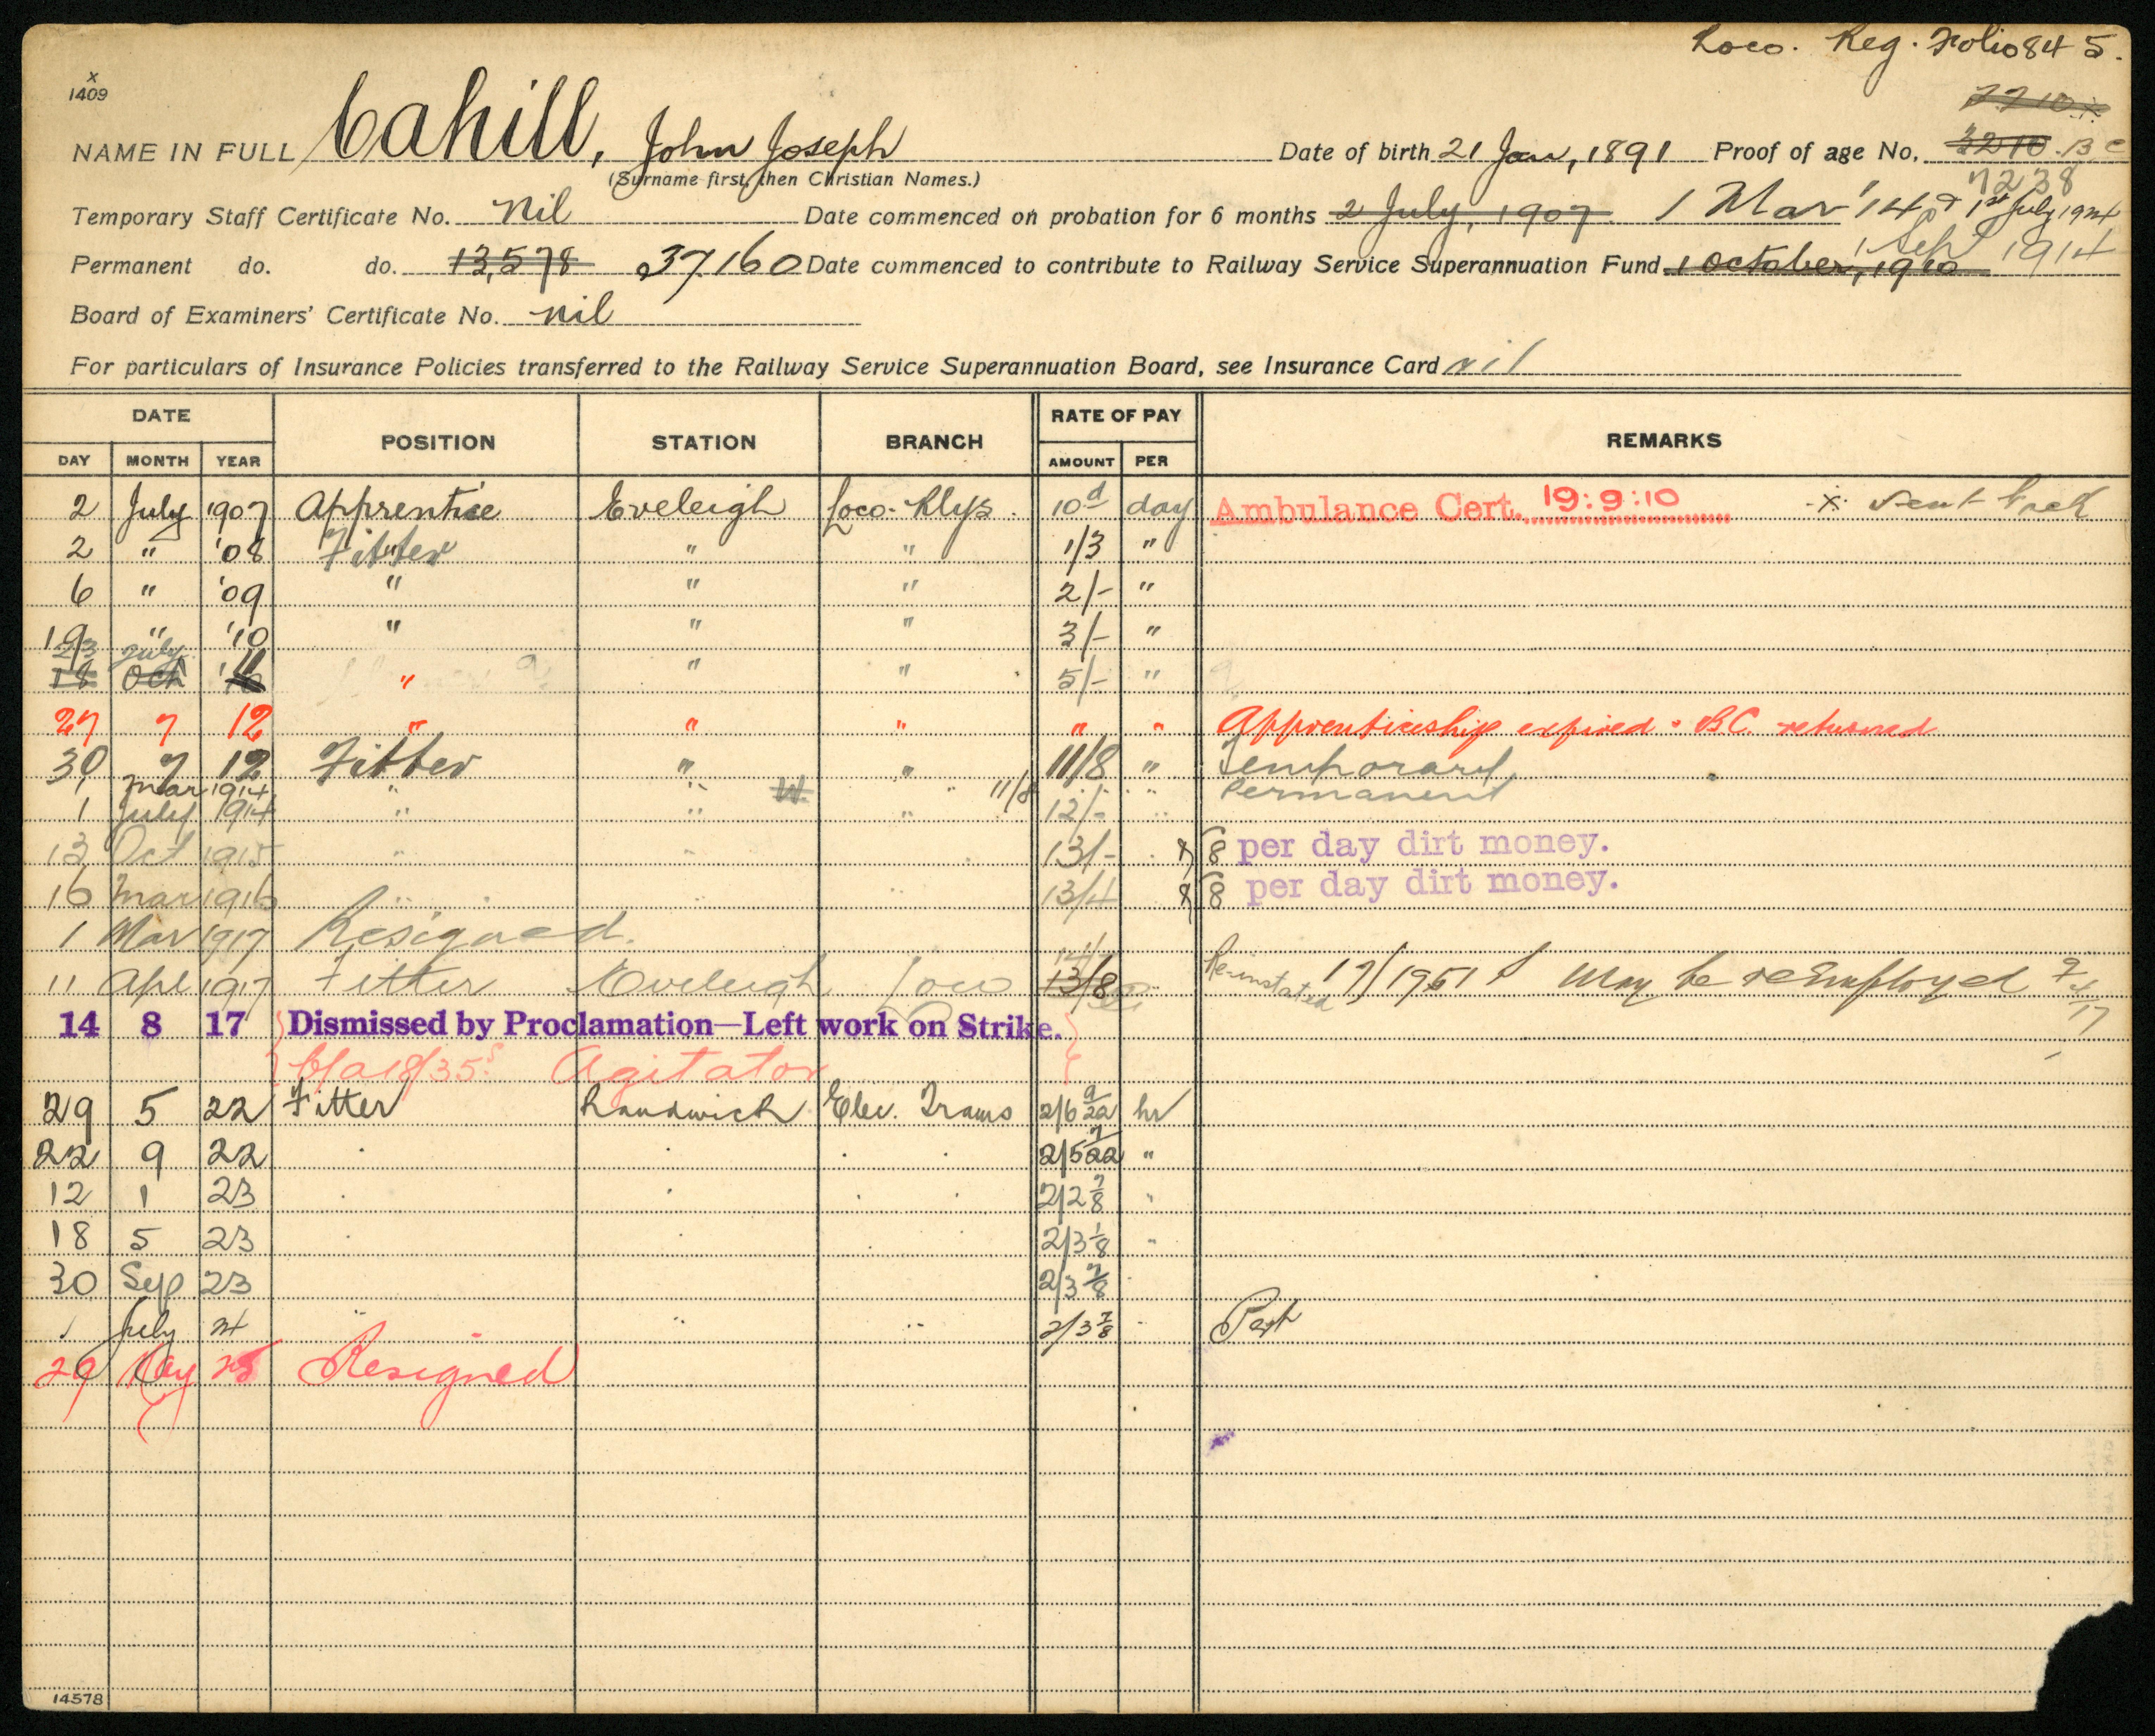 Loco. Reg. Folio 845.
x
1409
NAME IN FULL Cahill, John Joseph Date of birth 21 Jan, 1891 Proof of age No. 3210 B.C
(Surname first, then Christian Names.) 7238
Temporary Staff Certificate No. Nil Date commenced on probation for 6 months 2 July, 1907 1 Mar '14 1st July 1924
Permanent do. do. 13,578 37160 Date commenced to contribute to Railway Service Superannuation Fund 1 October, 1910 1 Sep 1914
Board of Examiners' Certificate No. nil
For particulars of Insurance Policies transferred to the Railway Service Superannuation Board, see Insurance Card nil
DATE POSITION STATION BRANCH RATE OF PAY REMARKS
DAY MONTH YEAR AMOUNT PER
2 July 1907 Apprentice Eveleigh Loco. Rlys. 10d day Ambulance Cert. 19:9:10 x sent back
2 " '08 Fitter " " 1/3 "
6 " '09 " " " 2/- "
19 " '10 " " " 3/- "
23 July
18 Oct '11 " " " 5/- "
27 7 12 " " " " " Apprenticeship expired. BC. returned
30 7 12 Fitter " " 11/8 " Temporary
1 Mar 1914 " " " 11/8 " Permanent
1 July 1914 " " " 12/- "
13 Oct 1915 " " 13/- 8 per day dirt money.
16 Mar 1916 " " 13/4 8 per day dirt money.
1 Mar 1917 Resigned.
11 Apl 1917 Fitter Eveleigh Loco 13/8 Re-instated 17/1951 May be reemployed 2/4/17
14 8 17 Dismissed by Proclamation—Left work on Strike.
Agitator
29 5 22 Fitter Randwick Elec. Trams 2/6 9/22 hr
22 9 22 . . . . 2/5 7/22 "
12 1 23 . . . . 2/2 7/8 "
18 5 23 . . . . 2/3 1/8 "
30 Sep 23 2/3 7/8
1 July 24 " " " 2/3 7/8 "
29 May 25 Resigned
14578